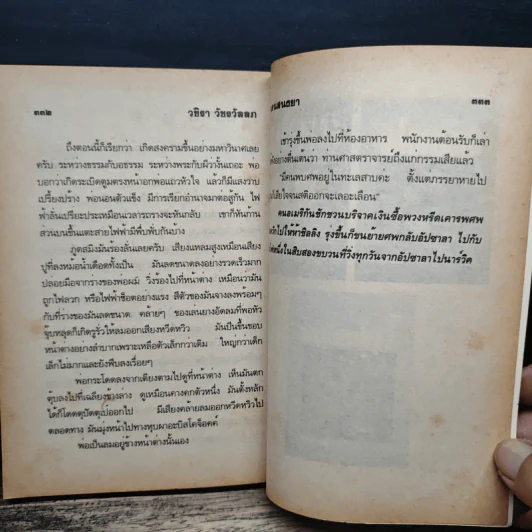 ๓๓๒ วนิดา วัชรวัลลภ
ถึงตอนนี้ก็เรียกว่า เกิดสงครามขึ้นอย่างมหาวินาศเลย
ครับ ระหว่างธรรมกับอธรรม ระหว่างพระกับผีว่างั้นเถอะ พ่อ
บอกว่าเกิดระเบิดตูมตรงหน้าอกพ่อแถวหัวใจ แล้วก็มีแสงวาบ
เปรี้ยงปราง พ่อนอนตัวแข็ง มีการเรียกอำนาจมาต่อสู้กัน ไฟ
ฟ้าลั่นเปรียะประเหมือนเวลารถรางจะหันกลับ เขาก็หันก้าน
สวนบนขึ้นแตะสายไฟฟ้ามีพึ่บพับกันบ้าง
ภูตสมิงมันร้องลั่นเลยครับ เสียงแหลมสูงเหมือนเสียง
ปู่ที่ลงหม้อน้ำเดือดทั้งเป็น มันลดขนาดลงอย่างรวดเร็วมาก
ปลอยมือจากร่างของพ่อผม วิ่งร้องไปที่หน้าต่าง เหมือนว่ามัน
ถูกไฟลวก หรือไฟฟ้าช็อตอย่างแรง สีตัวของมันจางลงพร้อมๆ
กับที่ร่างของมันลดขนาด คล้ายๆ ของเล่นยางอัดลมที่พอหัว
จุ๊บหลุดก็เกิดรูรั่วให้ลมออกเสียงหวีดหวิว มันปีนขึ้นขอบ
หน้าต่างอย่างลำบากเพราะเหลือตัวเล็กกว่าเดิม ใหญ่กว่าเด็ก
เล็กไม่มากและยังฟีบลงเรื่อยๆ
พ่อกระโดดลงจากเตียงตามไปดูที่หน้าต่าง เห็นมันตก
ตุ้บลงไปที่เฉลียงข้างล่าง ดูเหมือนคางคกตัวหนึ่ง มันตั้งหลัก
ได้ก็โดดตุปัดตุเป๋ออกไป มีเสียงคล้ายลมออกหวีดหวิวไป
ตลอดทาง มันมุ่งหน้าไปทางหุบผาอะบิสโคจ็อคค์
พ่อเป็นลมอยู่ข้างหน้าต่างนั้นเอง
๓๓๓
เช้ารุ่งขึ้นพอลงไปที่ห้องอาหาร พนักงานต้อนรับก็เล่า
อย่างตื่นเต้นว่า ท่านศาสตราจารย์ถึงแก่กรรมเสียแล้ว
"มีคนพบศพอยู่ในทะเลสาบค่ะ ตั้งแต่ภรรยาหายไป
เสียใจจนสติออกจะเลอะเลือน"
คนอเมริกันชักชวนบริจาคเงินซื้อพวงหรีดเคารพศพ
ไปให้ห้าชิลลิง รุ่งขึ้นก็ขนย้ายศพกลับอัปซาลา ไปกับ
หนึ่งในสิบสองขบวนที่วิ่งทุกวันจากอัปซาลาไปนาร์วีค